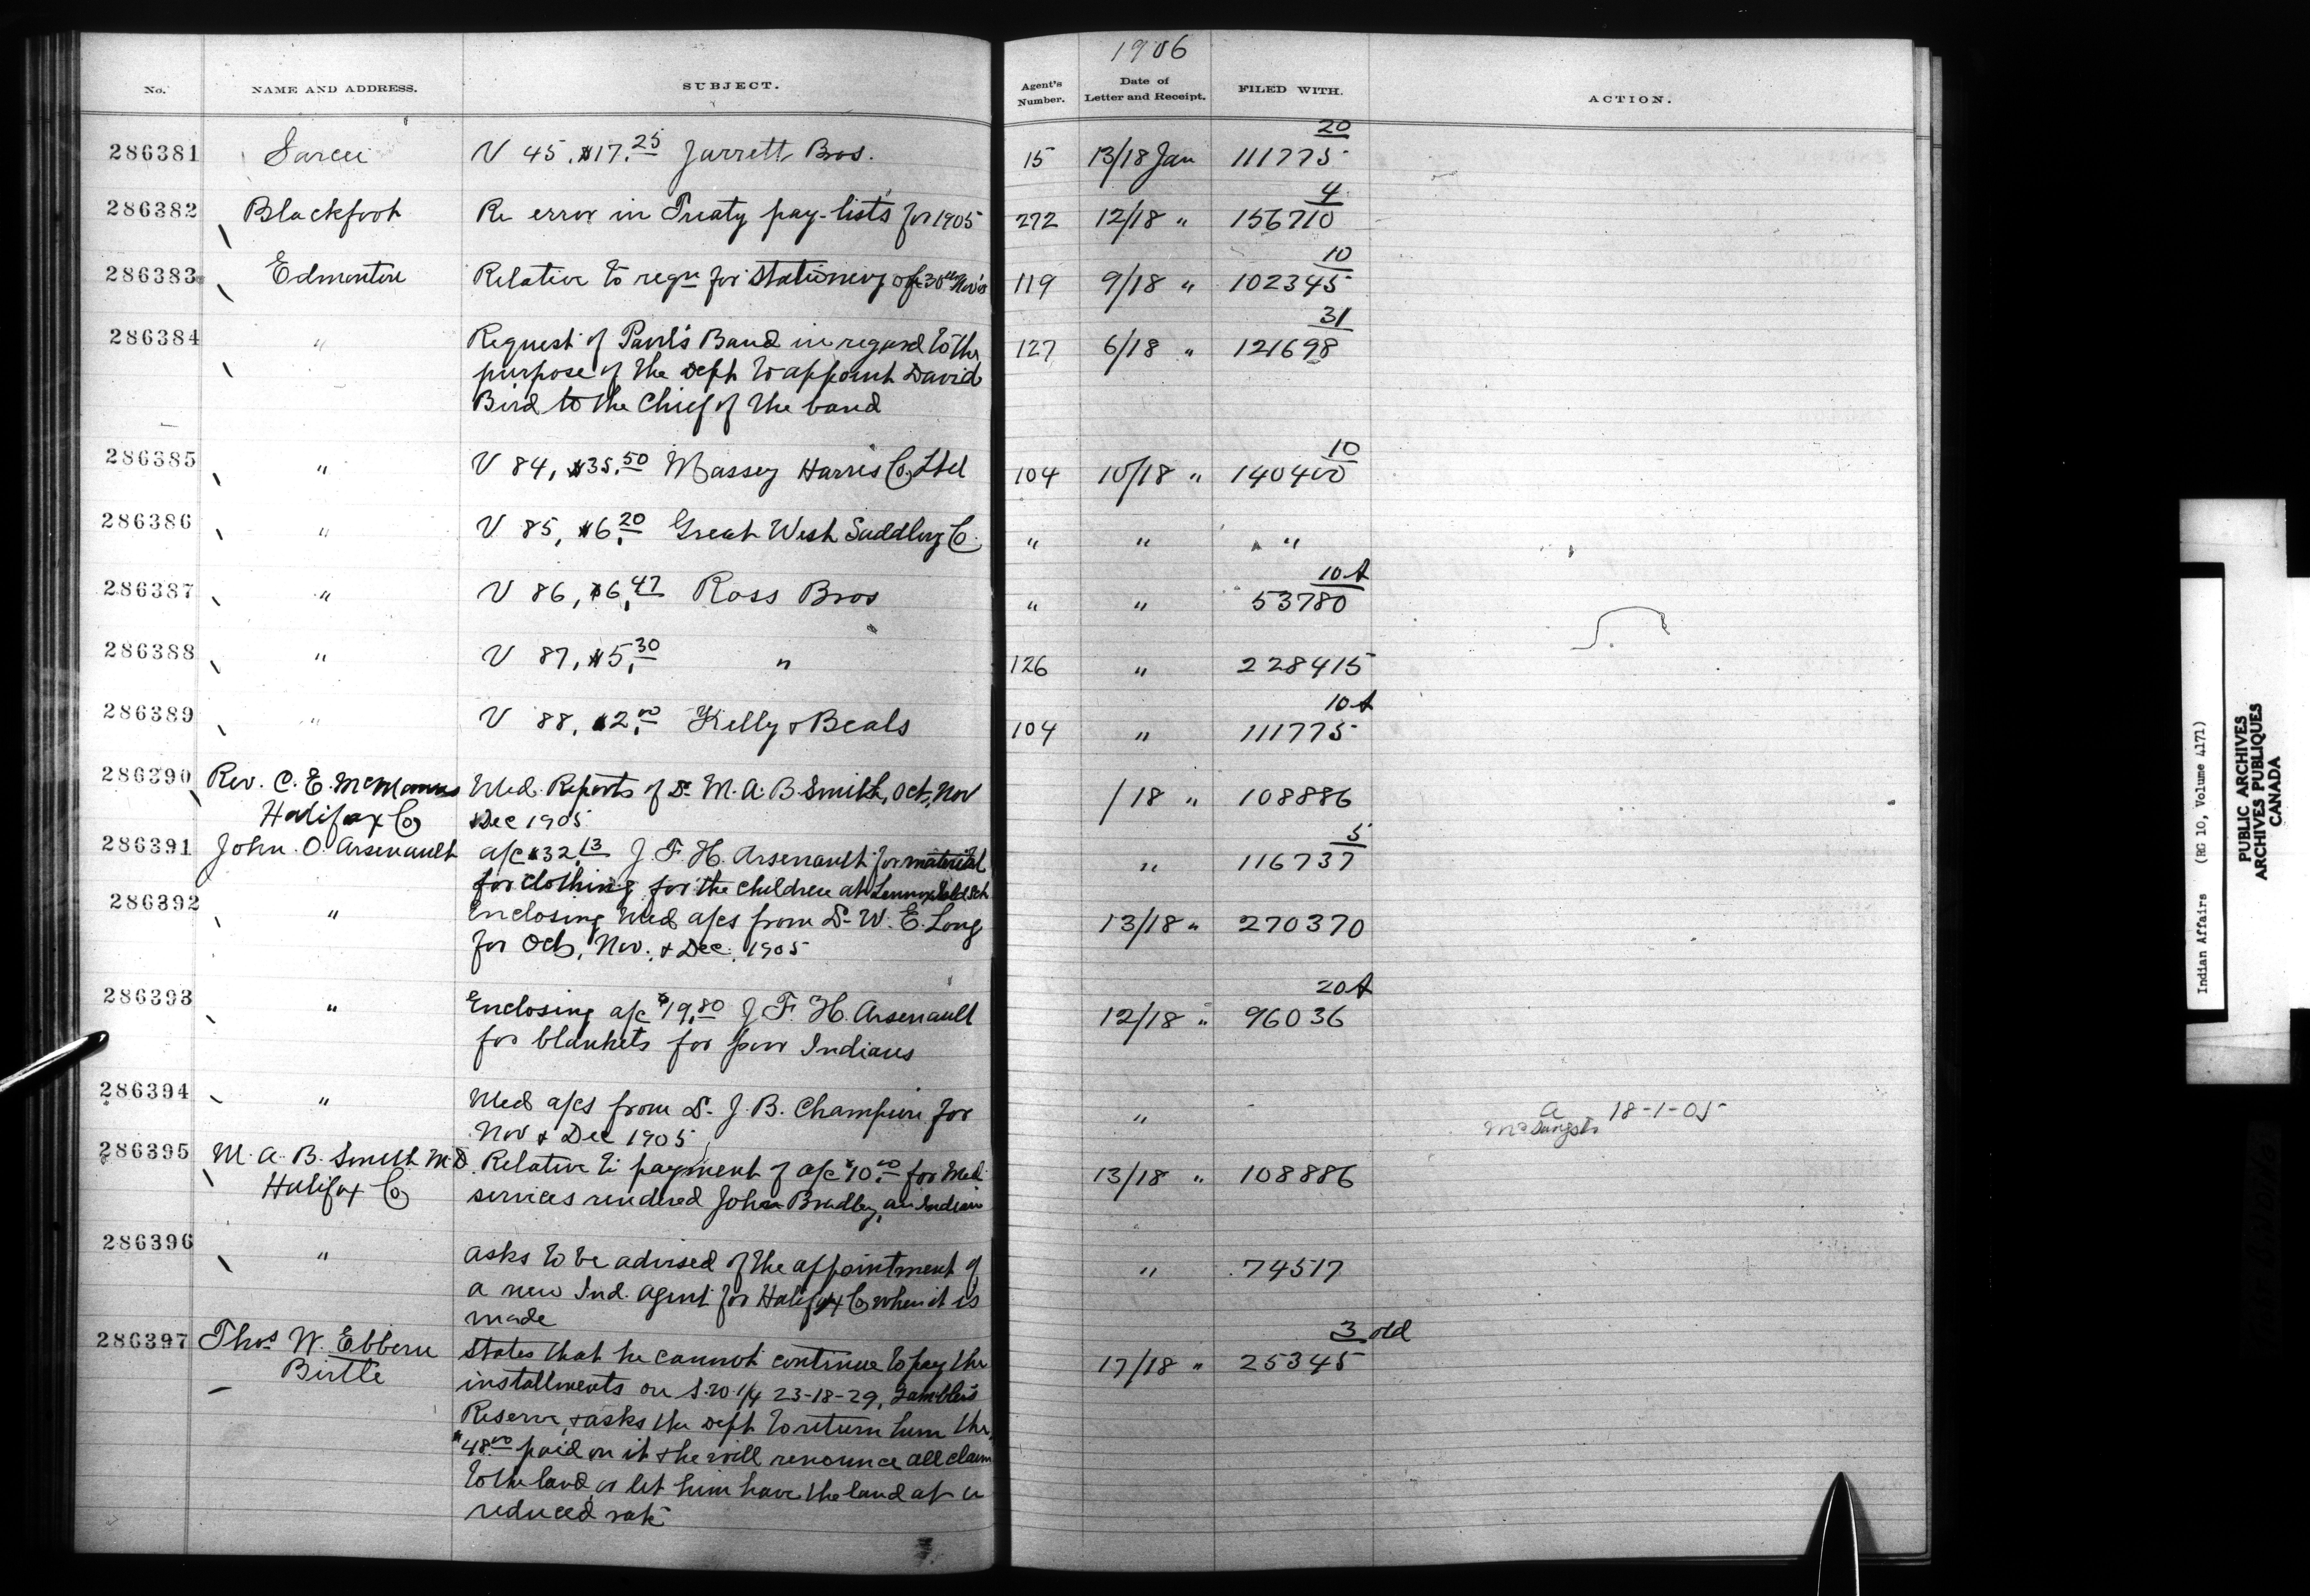 1906
No. NAME AND ADDRESS. SUBJECT. Agent's Number. Date of Letter and Receipt. FILED WITH. ACTION.
20
286381 Sarcee V 45, $17.25 Jarrett Bros. 15 13/18 Jan 111775
4
286382 Blackfoot Re error in Treaty pay-lists for 1905 272 12/18 " 156710
10
286383 Edmonton Relative to reqn for stationery of 30th Nov 119 9/18 " 102345
31
286384 " Request of Paul's Band in regard to the 127 6/18 " 121698
purpose of the Dept to appoint David
Bird to the Chief of the band
10
286385 " V 84, $35.50 Massey Harris Co Ltd 104 10/18 " 140400
286386 " V 85, $6.20 Great West Saddlery Co. " " "
10 A
286387 " V 86, $6.47 Ross Bros " " 53780
286388 " V 87, $5.30 " 126 " 228415
10 A
286389 " V 88, $2.00 Kelly & Beals 104 " 111775
286390 Rev. C. E. McManus Med. Reports of Dr. M. A. B. Smith, Oct, Nov /18 " 108886
Halifax Co & Dec 1905
5
286391 John O. Arsenault a/c $32.13 J. F. H. Arsenault for material " 116737
for clothing for the children at Lennox Isld Sch
286392 " Enclosing Med a/cs from Dr. W. E. Long 13/18 " 270370
for Oct, Nov. & Dec. 1905
20 A
286393 " Enclosing a/c $19.80 J. F. H. Arsenault 12/18 " 96036
for blankets for poor Indians
286394 " Med a/cs from Dr. J. B. Champion for " A 18-1-05
Nov & Dec 1905
286395 M. A. B. Smith M.D. Relative to payment of a/c $10.00 for Med 13/18 " 108886
Halifax Co services rendered John Bradley, an Indian
286396 " Asks to be advised of the appointment of " 74517
a new Ind. Agent for Halifax Co when it is
made
3 old
286397 Thos W. Ebbern States that he cannot continue to pay the 17/18 " 25345
Birtle installments on S.W. 1/4 23-18-29, Gambler's
Reserve, & asks the Dept to return him the
$48.00 paid on it & he will renounce all claim
to the land, or let him have the land at a
reduced rate
Indian Affairs (RG 10, Volume 4171)
PUBLIC ARCHIVES
ARCHIVES PUBLIQUES
CANADA